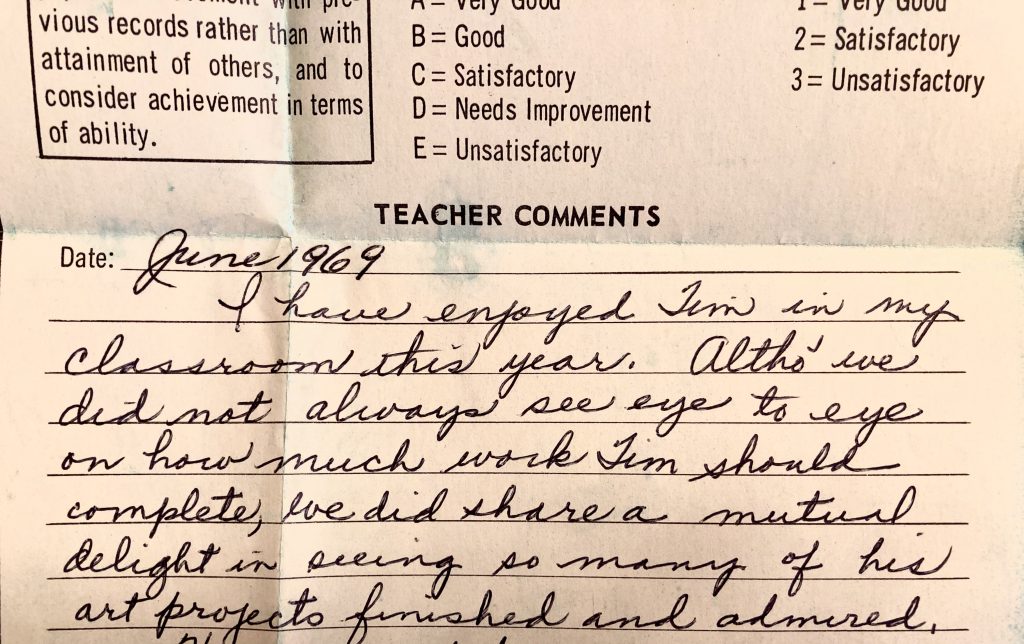 vious records rather than with
attainment of others, and to
consider achievement in terms
of ability.
A = Very Good
B = Good
C = Satisfactory
D = Needs Improvement
E = Unsatisfactory
1 = Very Good
2 = Satisfactory
3 = Unsatisfactory
TEACHER COMMENTS
Date: June 1969
I have enjoyed Tim in my
classroom this year. Altho' we
did not always see eye to eye
on how much work Tim should
complete, we did share a mutual
delight in seeing so many of his
art projects finished and admired.